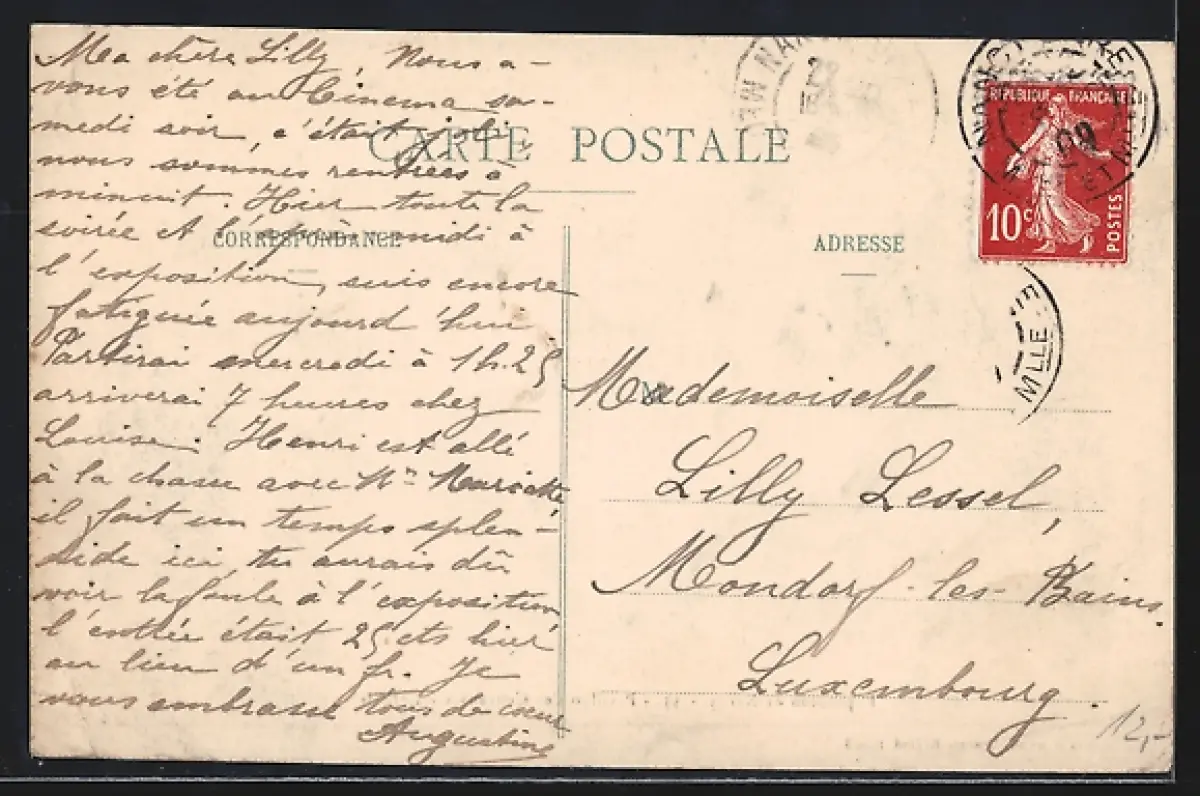 Ma chère Lilly, Nous a-
vons été au Cinema sa-
medi soir, c'était joli,
nous sommes rentrées à
minuit. Hier toute la
soirée et l'après-midi à
l'exposition, suis encore
fatiguée aujourd'hui
Partirai mercredi à 1h.25
arriverai 7 heures chez
Louise. Henri est allé
à la chasse avec Mr
il fait un temps splen-
dide ici, tu aurais dû
voir la foule à l'exposition
l'entrée était 25 cts hier
au lieu d'un fr. Je
vous embrasse tous de coeur
Augustine
CARTE POSTALE
CORRESPONDANCE
ADRESSE
REPUBLIQUE FRANÇAISE
10 c.
POSTES
09
ET M
MLLE
Mademoiselle
Lilly Lessel,
Mondorf-les-Bains.
Luxembourg.
12,-